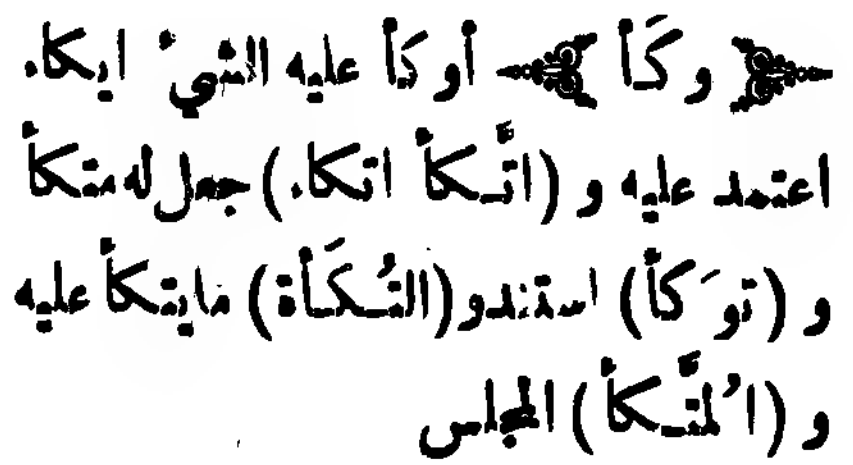 ﴿ وكَأ ﴾ أوكأ عليه الشيء ايكاء
اعتمد عليه و (اتَّكأ اتكاء) جعل له متكأ
و (توَكأ) استند و (التُكَأة) ما يتكأ عليه
و (المُتَّكأ) المجلس